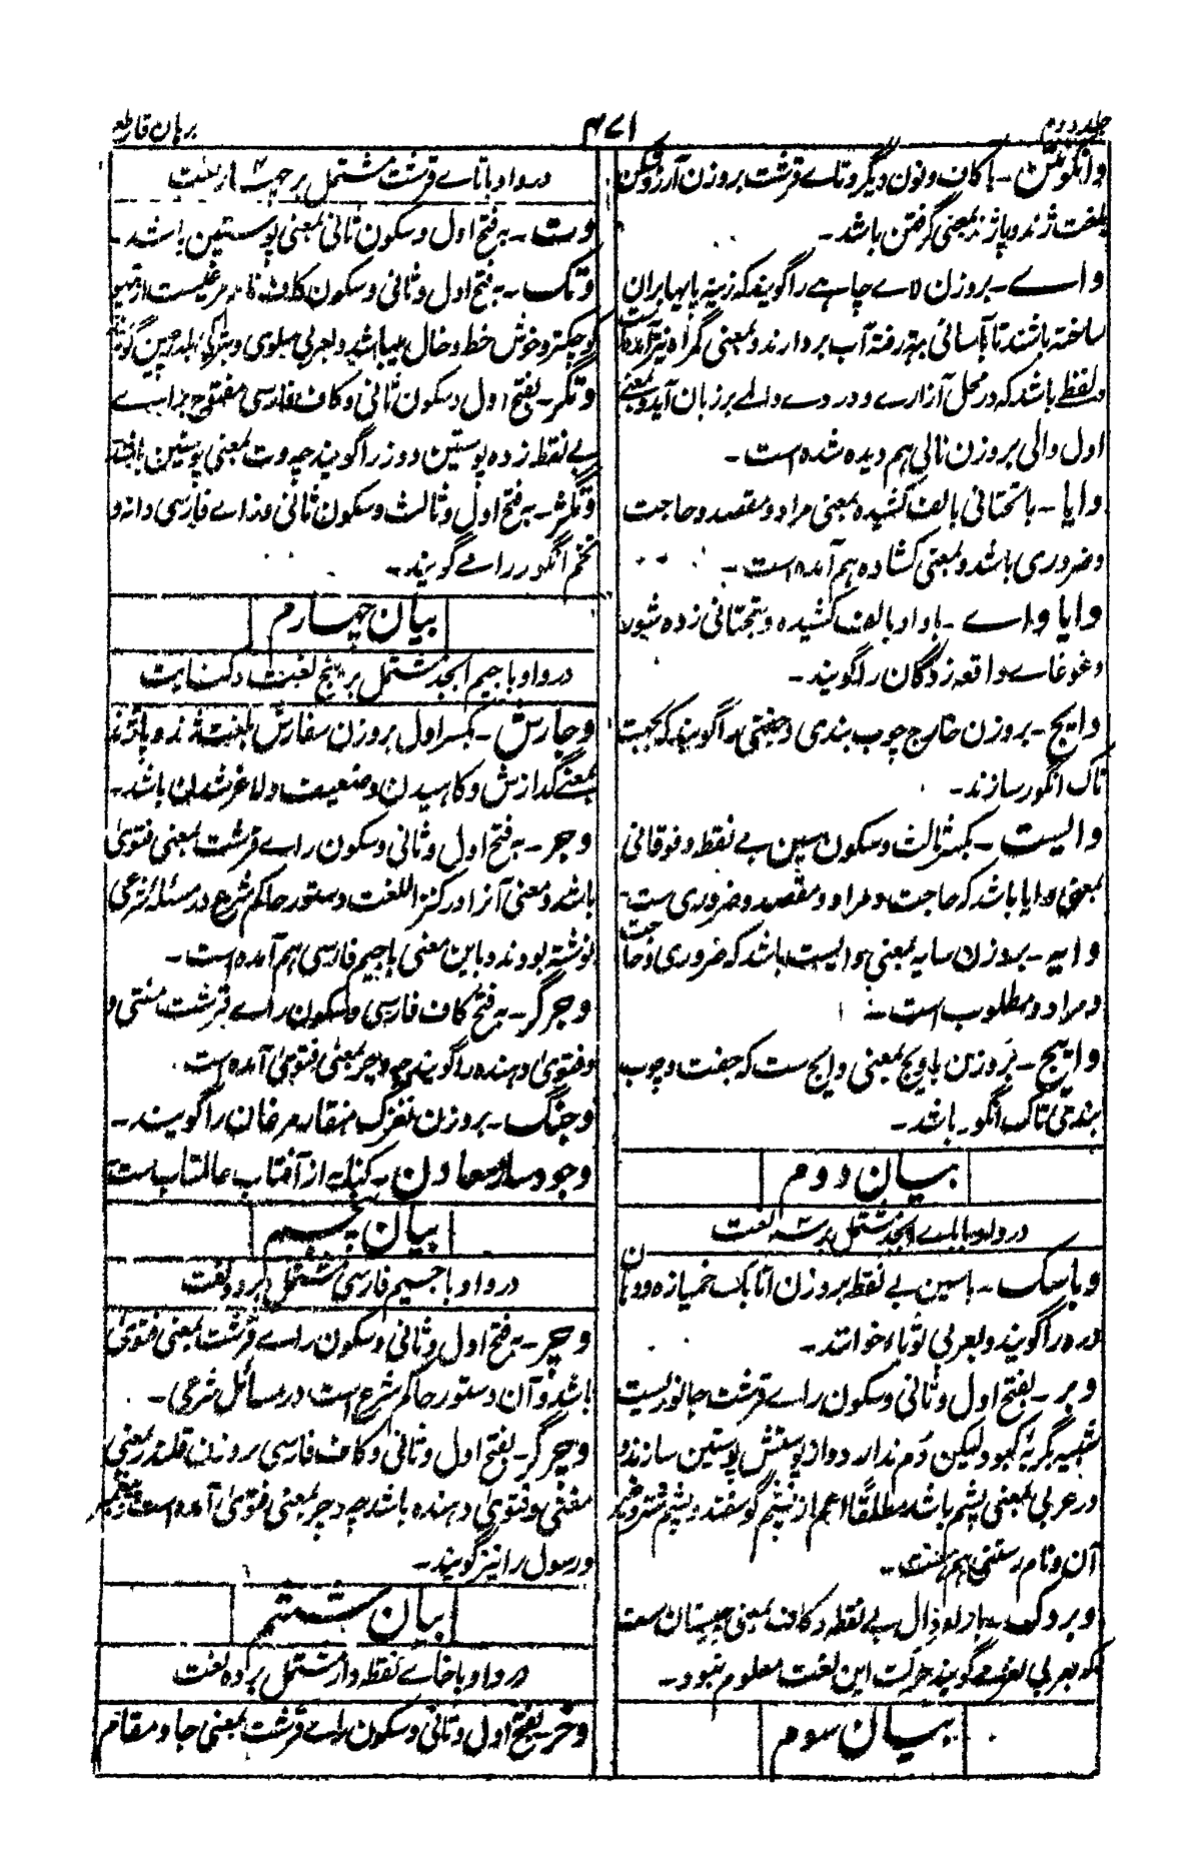 جلد دوم
۴۷۱
برهان قاطع
وانگونتن - با کاف و نون دیگر و تاے قرشت بروزن آرزو فکن
بلغت ژند و پاژند بمعنی گرفتن باشد -
واے - بروزن لاے چاہے را گویند که زینه پایها بران
ساخته باشند تا بآسانی بته رفته آب بردارند و بمعنی گمراه نیز آمده است
و لفظے باشد که در محل آزارے و دردے و المے بر زبان آید و بمعنے
اول والی بروزن نالی هم دیده شده است -
وایا - با تحتانی بالف کشیده بمعنی مراد و مقصد و حاجت
و ضروری باشد و بمعنی کشاده هم آمده است -
وایا واے - با واو بالف کشیده و بتحتانی زده شور
و غوغاے واقعه زدگان را گویند -
وایج - بروزن خارج چوب بندی و جفتی را گویند که بجهت
تاک انگور سازند -
وایست - بکسر ثالث و سکون سین بے نقطه و فوقانی
بمعنی وایا باشد که حاجت و مراد و مقصد و ضروری ست -
وایه - بروزن سایه بمعنی وایست باشد که ضروری و حاجت
و مراد و مطلوب است -
واییج - بروزن باویج بمعنی وایج ست که جفت و چوب
بندی تاک انگور باشد -
بیان دوم
در واو با باے ابجد مشتمل بر سه لغت
وباسک - با سین بے نقطه بروزن اتابک خمیازه و دهان
دره را گویند و بعربی ثوباء خوانند -
وبر - بفتح اول و ثانی و سکون راے قرشت جانوریست
شبیه بگربه کبود لیکن دم ندارد و از پوستش پوستین سازند و
در عربی بمعنی پشم باشد مطلقا اعم از پشم گوسفند و پشم شتر و غیر
آن و نام رستنی هم هست -
وبردک - با دال بے نقطه و کاف بمعنی چیستان ست
که بعربی لغز گویند حرکت این لغت معلوم نبود -
بیان سوم
در واو با تاے قرشت مشتمل بر چهار لغت
وت - به فتح اول و سکون ثانی بمعنی پوستین باشد -
وتک - به فتح اول و ثانی و سکون کاف نام مرغیست از تیهو
کوچکتر و خوش خط و خال میباشد و بعربی سلوی و بترکی بلدرچین گویند
وتگر - بفتح اول و سکون ثانی و کاف فارسی مفتوح براے
بے نقطه زده پوستین دوز را گویند چه وت بمعنی پوستین باشد
وتلگر - به فتح اول و ثالث و سکون ثانی و راے فارسی دانه و
تخم انگور را گویند -
بیان چهارم
در واو با جیم ابجد مشتمل بر پنج لغت و کنایت
وجارش - بکسر اول بروزن سفارش بلغت ژند و پاژند
بمعنے گدازش و کاهیدن و ضعیف و لاغر شدن باشد -
وجر - به فتح اول و ثانی و سکون راے قرشت بمعنی فتوی
باشد و معنی آنرا در کنز اللغت دستور حاکم شرع در مسئله شرعی
نوشته بودند و باین معنی با جیم فارسی هم آمده است -
وجرگر - به فتح کاف فارسی و سکون راے قرشت مفتی و
و فتوی دهنده را گویند چه وجر بمعنی فتوی آمده است.
وجنگ - بروزن نغزک منقار مرغان را گویند -
وجود ساز معادن - کنایه از آفتاب عالمتاب ست
بیان پنجم
در واو با جیم فارسی مشتمل بر دو لغت
وچر - به فتح اول و ثانی و سکون راے قرشت بمعنی فتوی
باشد و آن دستور حاکم شرع است در مسائل شرعی -
وچرگر - بفتح اول و ثانی و کاف فارسی بروزن قلندر بمعنی
مفتی و فتوی دهنده باشد چه وچر بمعنی فتوی آمده است و پیغمبر
و رسول را نیز گویند -
بیان ششم
در واو با خاے نقطه دار مشتمل بر ده لغت
وخر - بفتح اول و ثانی و سکون راے قرشت بمعنی جا و مقام